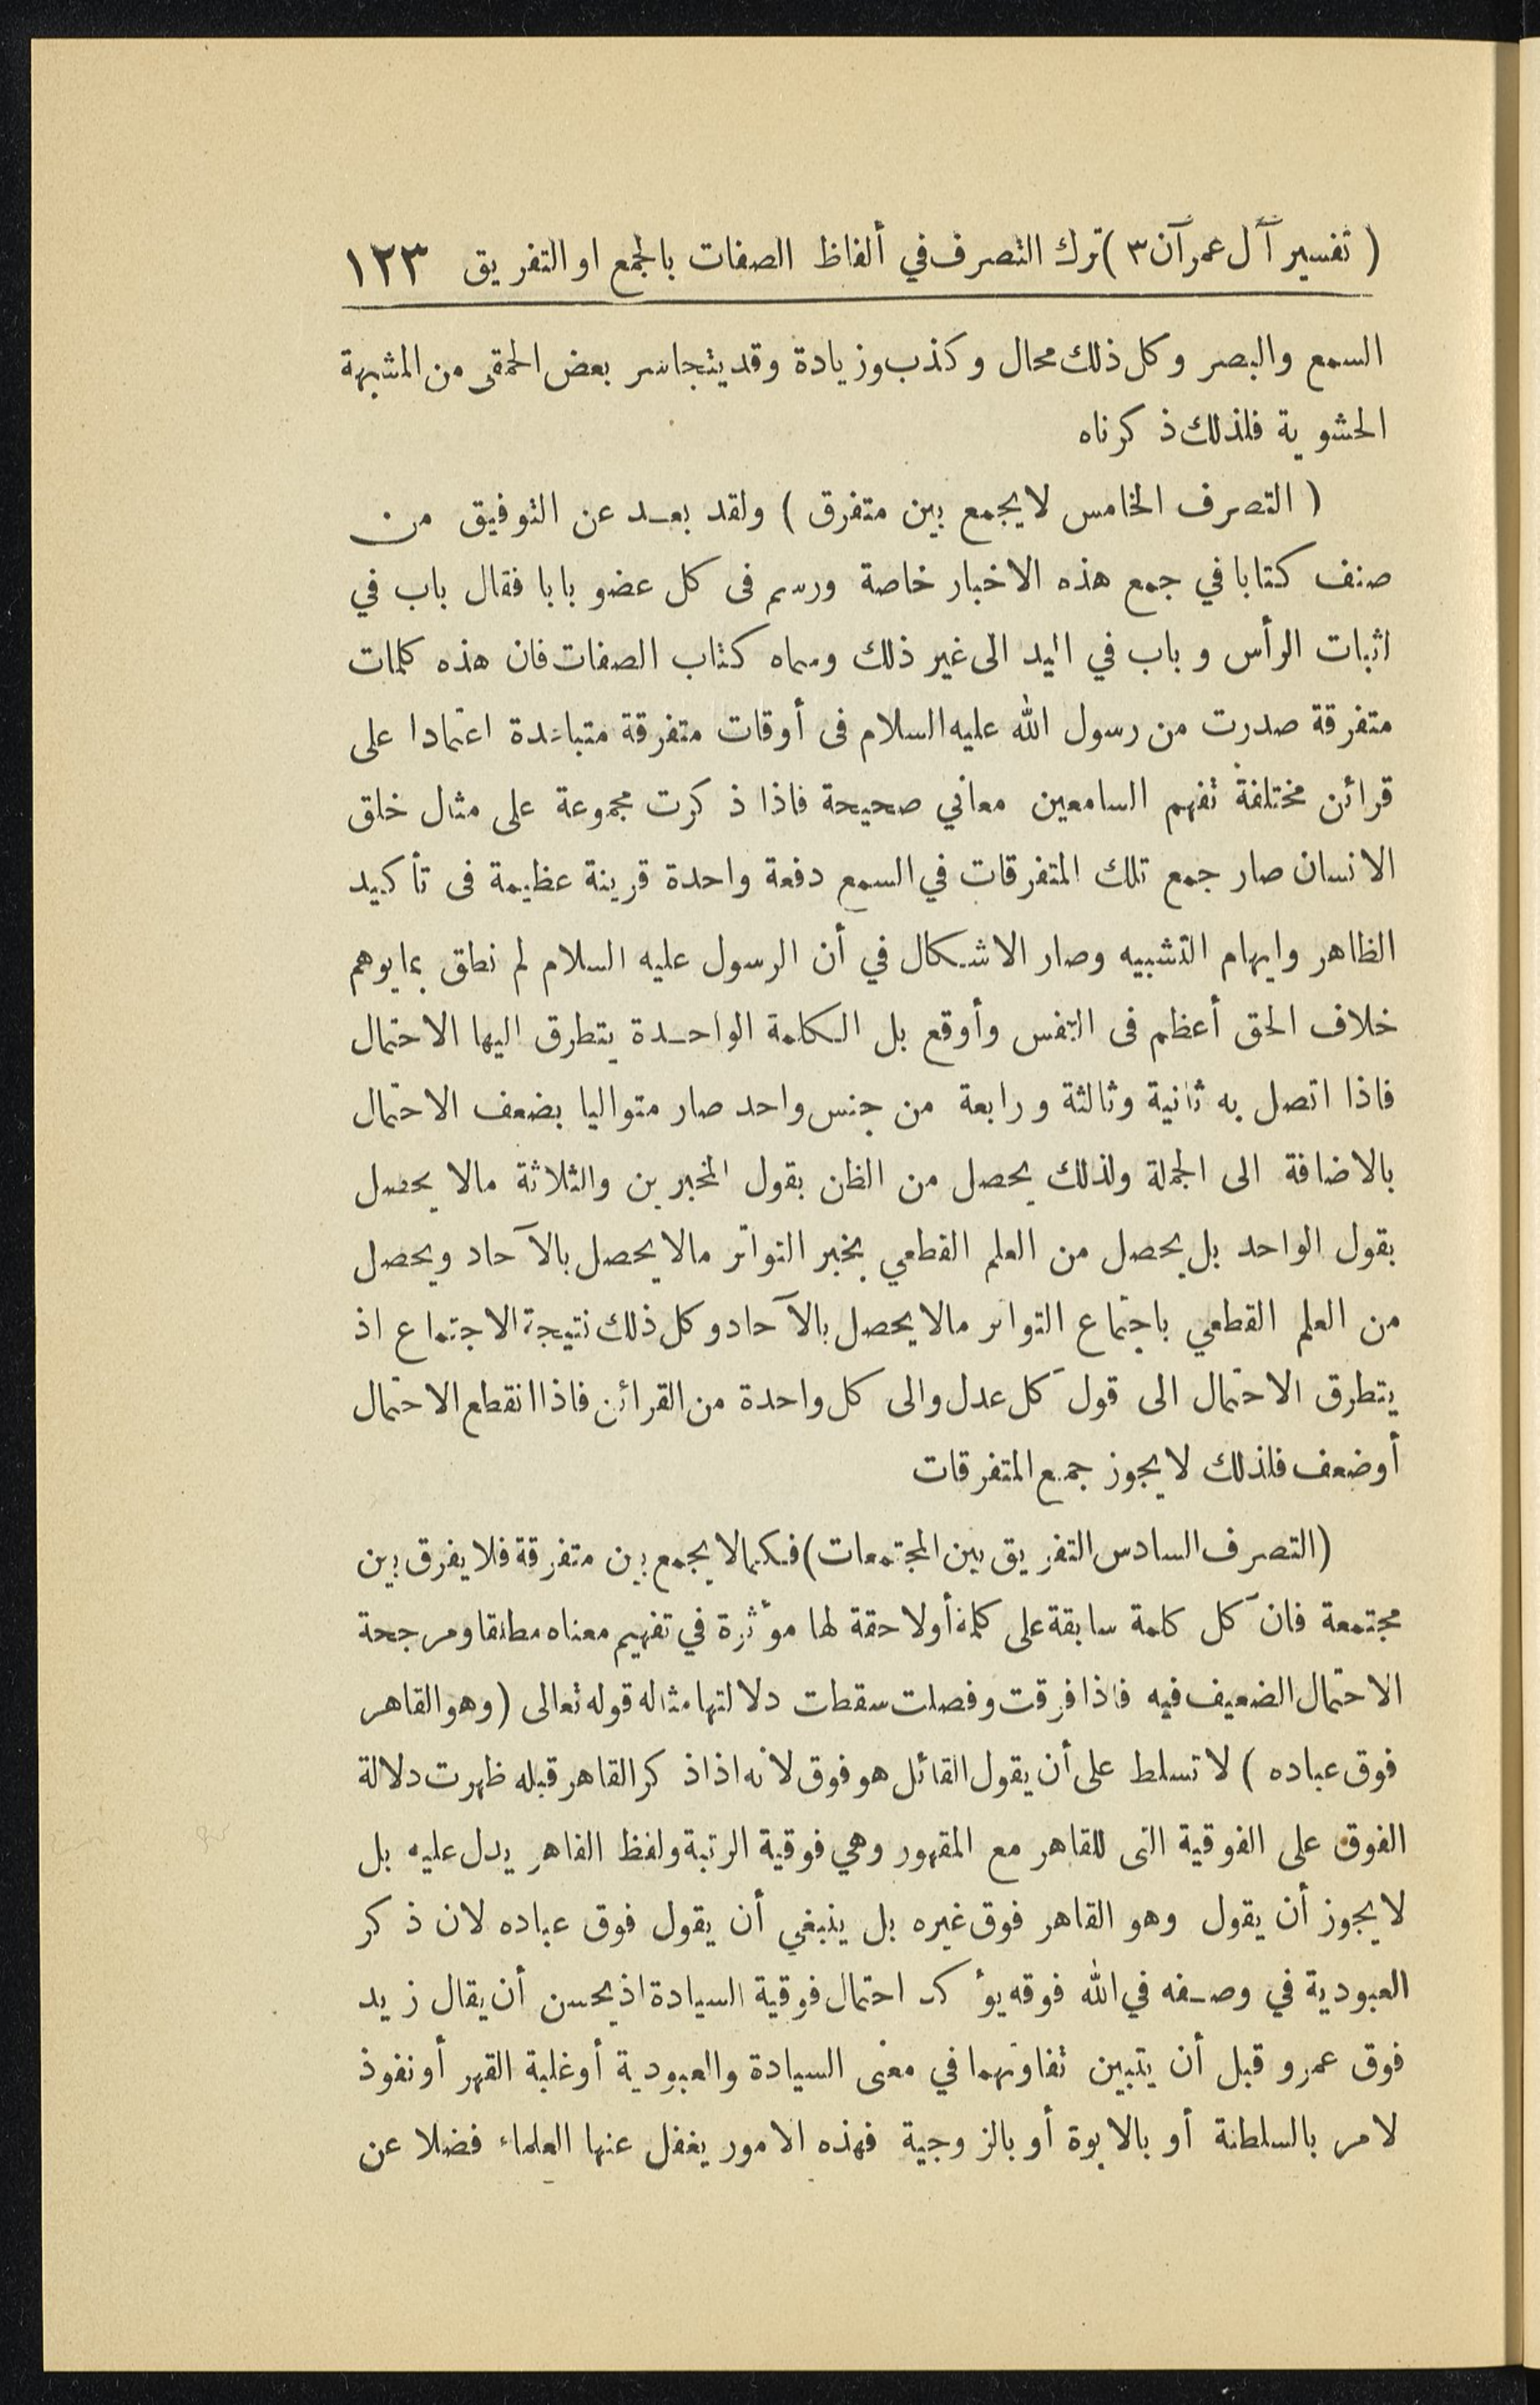 ( تفسير آل عمرآن ٣ ) ترك التصرف في ألفاظ الصفات بالجمع او التفريق ١٢٣
السمع والبصر وكل ذلك محال وكذب وزيادة وقد يتجاسر بعض الحمقى من المشبهة
الحشوية فلذلك ذكرناه
( التصرف الخامس لا يجمع بين متفرق ) ولقد بعد عن التوفيق من
صنف كتابا في جمع هذه الاخبار خاصة ورسم فى كل عضو بابا فقال باب في
اثبات الرأس وباب في اليد الى غير ذلك وسماه كتاب الصفات فان هذه كلمات
متفرقة صدرت من رسول الله عليه السلام فى أوقات متفرقة متباعدة اعتمادا على
قرائن مختلفة تفهم السامعين معاني صحيحة فاذا ذكرت مجموعة على مثال خلق
الانسان صار جمع تلك المتفرقات في السمع دفعة واحدة قرينة عظيمة فى تأكيد
الظاهر وايهام التشبيه وصار الاشكال في أن الرسول عليه السلام لم نطق بما يوهم
خلاف الحق أعظم فى النفس وأوقع بل الكلمة الواحدة يتطرق اليها الاحتمال
فاذا اتصل به ثانية وثالثة ورابعة من جنس واحد صار متواليا بضعف الاحتمال
بالاضافة الى الجملة ولذلك يحصل من الظن بقول المخبرين والثلاثة مالا يحصل
بقول الواحد بل يحصل من العلم القطعي بخبر التواتر مالا يحصل بالآحاد ويحصل
من العلم القطعي باجتماع التواتر مالا يحصل بالآحاد وكل ذلك نتيجة الاجتماع اذ
يتطرق الاحتمال الى قول كل عدل والى كل واحدة من القرائن فاذا انقطع الاحتمال
أو ضعف فلذلك لا يجوز جمع المتفرقات
(التصرف السادس التفريق بين المجتمعات) فكما لا يجمع بين متفرقة فلا يفرق بين
مجتمعة فان كل كلمة سابقة على كلمة أو لاحقة لها مؤثرة في تفهيم معناه مطلقا ومرجحة
الاحتمال الضعيف فيه فاذا فرقت وفصلت سقطت دلالتها مثاله قوله تعالى (وهو القاهر
فوق عباده ) لا تسلط على أن يقول القائل هو فوق لانه اذا ذكر القاهر قبله ظهرت دلالة
الفوق على الفوقية التى للقاهر مع المقهور وهي فوقية الرتبة ولفظ القاهر يدل عليه بل
لا يجوز أن يقول وهو القاهر فوق غيره بل ينبغي أن يقول فوق عباده لان ذكر
العبودية في وصفه في الله فوقه يؤكد احتمال فوقية السيادة اذ يحسن أن يقال زيد
فوق عمرو قبل أن يتبين تفاوتهما في معنى السيادة والعبودية أو غلبة القهر أو نفوذ
لامر بالسلطنة أو بالابوة أو بالزوجية فهذه الامور يغفل عنها العلماء فضلا عن